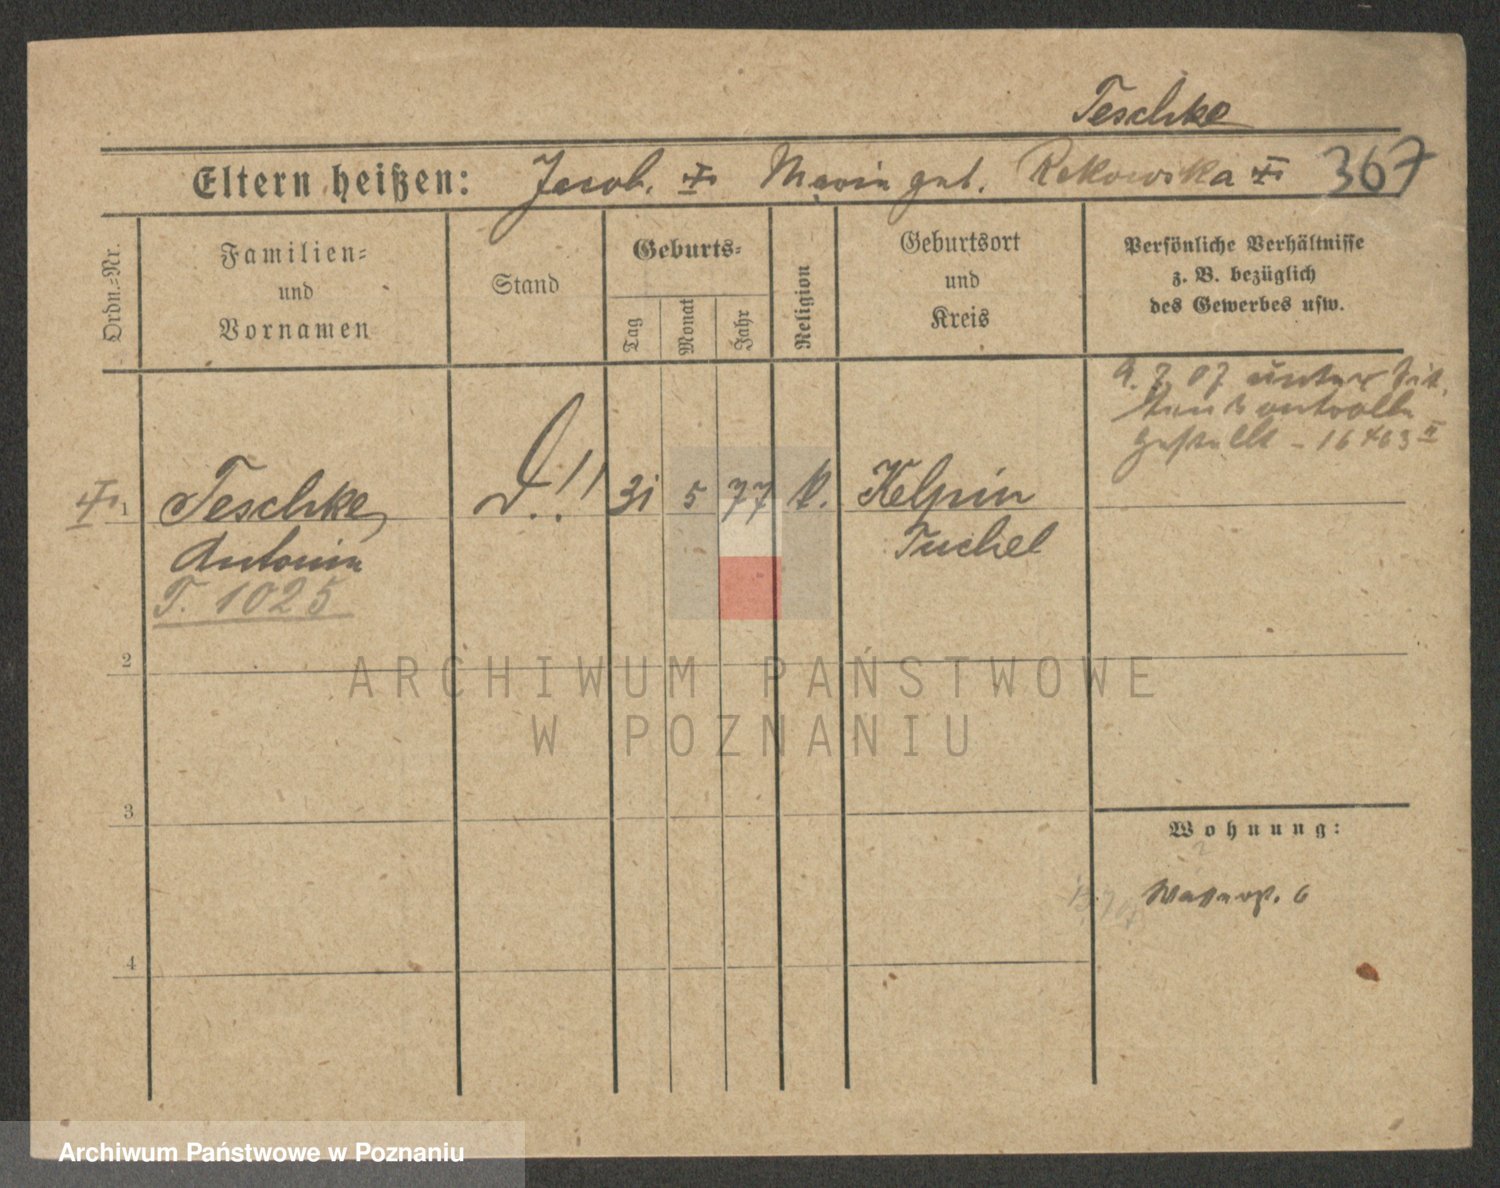 Teschke
Eltern heißen: Jacob. Maria geb. Rekowska 367
Ordn.=Nr.
Familien=
und
Vornamen
Stand
Geburts=
Tag
Monat
Jahr
Religion
Geburtsort
und
Kreis
Persönliche Verhältnisse
z. B. bezüglich
des Gewerbes usw.
07 unter Sit
tenkontrolle
gestellt – 16463 II
1 Teschke, 31 5 77 k. Kelpin
Antonie Tuchel
T. 1025
2
3
Wohnung:
Wasserst. 6
4
ARCHIWUM PAŃSTWOWE
W POZNANIU
Archiwum Państwowe w Poznaniu